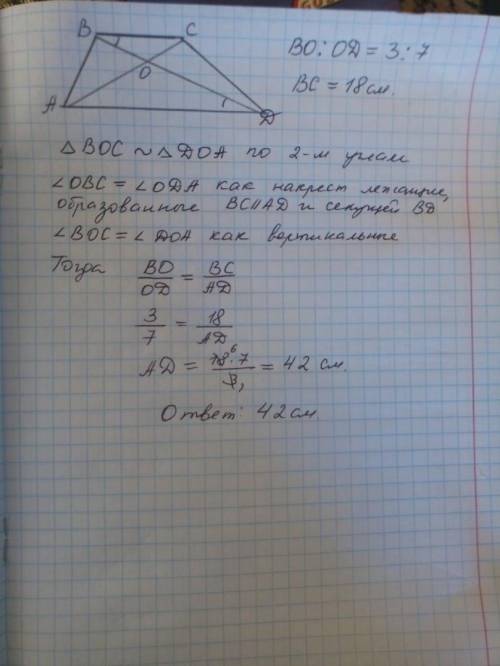 B C
O
A D
BO : OD = 3 : 7
BC = 18 см.
△ BOC ~ △ DOA по 2-м углам
∠OBC = ∠ODA как накрест лежащие,
образованные BC∥AD и секущей BD
∠BOC = ∠DOA как вертикальные
Тогда BO/OD = BC/AD
3/7 = 18/AD
AD = 18⁶·7/3₁ = 42 см.
Ответ: 42 см